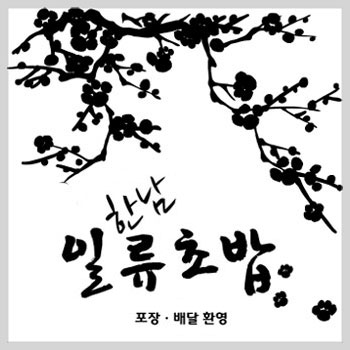 한남
일류초밥
포장 · 배달 환영